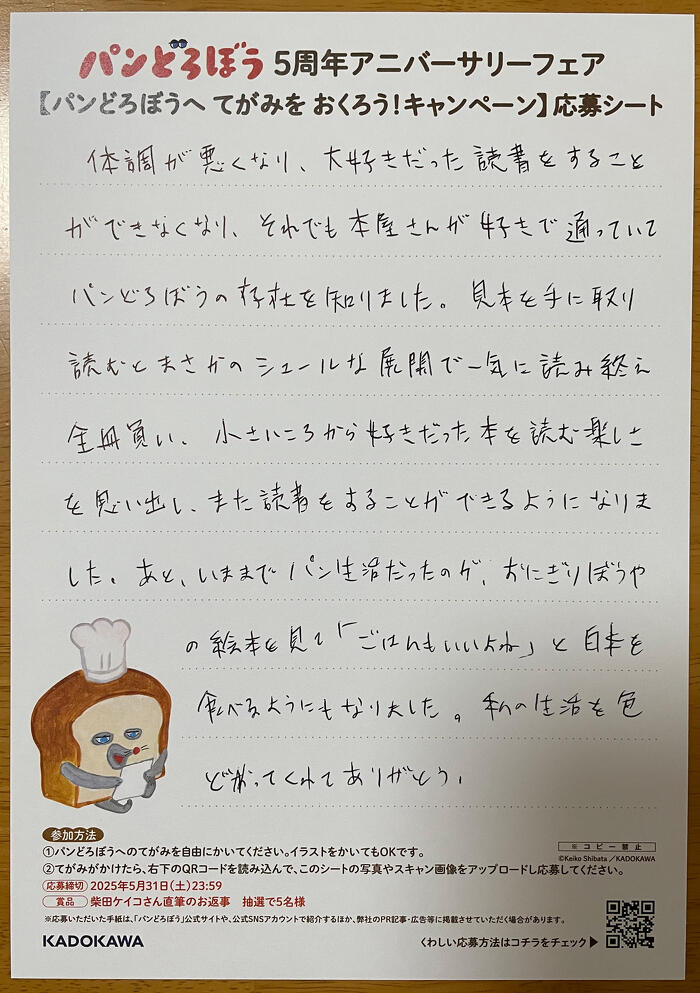 パンどろぼう 5周年アニバーサリーフェア
【パンどろぼうへ てがみを おくろう!キャンペーン】応募シート
体調が悪くなり、大好きだった読書をすること
ができなくなり、それでも本屋さんが好きで通っていて
パンどろぼうの存在を知りました。見本を手に取り
読むとまさかのシュールな展開で一気に読み終え
全冊買い、小さいころから好きだった本を読む楽しさ
を思い出し、また読書をすることができるようになりま
した。あと、いままでパン生活だったのが、おにぎりぼうや
の絵本を見て「ごはんもいいよね」と日本を
食べるようにもなりました。私の生活を色
どってくれてありがとう。
参加方法
①パンどろぼうへのてがみを自由にかいてください。イラストをかいてもOKです。
②てがみがかけたら、右下のQRコードを読み込んで、このシートの写真やスキャン画像をアップロードし応募してください。
※コピー禁止
©Keiko Shibata/KADOKAWA
応募締切 2025年5月31日(土)23:59
賞品 柴田ケイコさん直筆のお返事 抽選で5名様
※応募いただいた手紙は、「パンどろぼう」公式サイトや、公式SNSアカウントで紹介するほか、弊社のPR記事・広告等に掲載させていただく場合があります。
KADOKAWA
くわしい応募方法はコチラをチェック▶